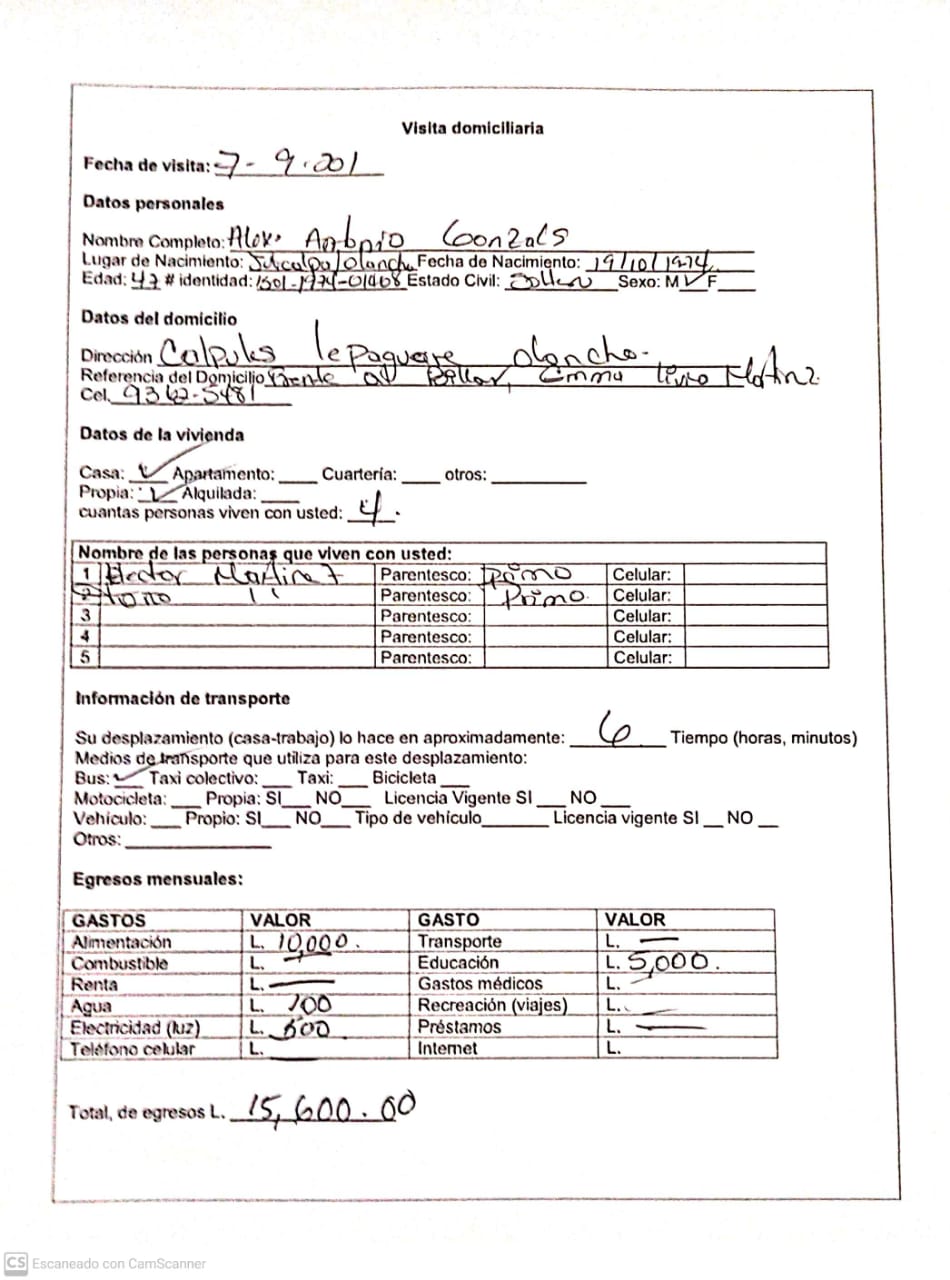 Visita domiciliaria
Fecha de visita: 7-9-201
Datos personales
Nombre Completo: Alex Antonio Gonzals
Lugar de Nacimiento: Juticalpa/Olancho Fecha de Nacimiento: 19/10/1974
Edad: 47 # identidad: 1501-1974-01408 Estado Civil: Soltero Sexo: M ✓ F___
Datos del domicilio
Dirección Calpules lepaguare olancho.
Referencia del Domicilio Frente al Billar, Emma Martinz
Cel. 9362-5481
Datos de la vivienda
Casa: ✓ Apartamento: ____ Cuartería: ____ otros: __________
Propia: ✓ Alquilada: ____
cuantas personas viven con usted: 4.
Nombre de las personas que viven con usted:
1 Hector Martinez Parentesco: Primo Celular:
2 '' Parentesco: Primo. Celular:
3 Parentesco: Celular:
4 Parentesco: Celular:
5 Parentesco: Celular:
Información de transporte
Su desplazamiento (casa-trabajo) lo hace en aproximadamente: 6 Tiempo (horas, minutos)
Medios de transporte que utiliza para este desplazamiento:
Bus: ✓ Taxi colectivo: ___ Taxi: ___ Bicicleta ___
Motocicleta: ___ Propia: SI___ NO___ Licencia Vigente SI ___ NO ___
Vehículo: ___ Propio: SI__ NO___ Tipo de vehículo_______ Licencia vigente SI __ NO __
Otros: _______________
Egresos mensuales:
GASTOS VALOR GASTO VALOR
Alimentación L. 10,000. Transporte L. —
Combustible L. — Educación L. 5,000.
Renta L. — Gastos médicos L. —
Agua L. 100 Recreación (viajes) L. —
Electricidad (luz) L. 500 Préstamos L. —
Teléfono celular L. ___ Internet L.
Total, de egresos L. 15,600.00
CS Escaneado con CamScanner